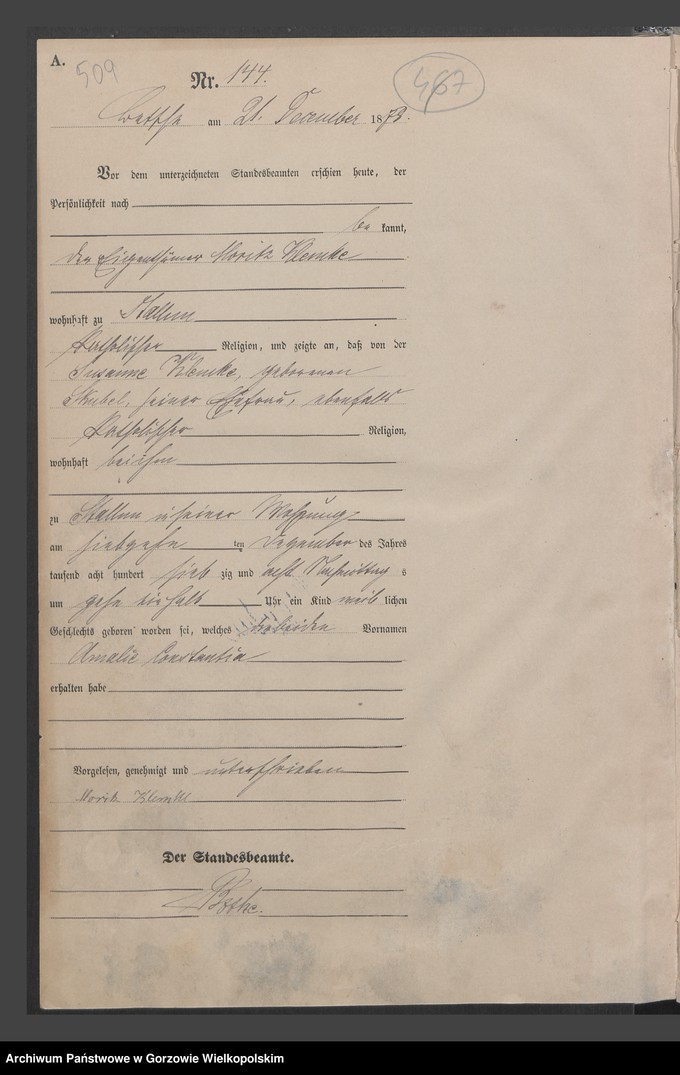 A.
509
Nr. 144.
467
Betsche am 21. December 1878.
Vor dem unterzeichneten Standesbeamten erschien heute, der
Persönlichkeit nach
be kannt,
der Eigenthümer Moritz Klemke
wohnhaft zu Stallun
katholischer Religion, und zeigte an, daß von der
Susanne Klemke, geborenen
seiner Ehefrau, ebenfalls
katholischer Religion,
wohnhaft bei ihm
zu Stallun in seiner Wohnung
am siebzehn ten Dezember des Jahres
tausend acht hundert sieb zig und acht Nachmittag s
um zehn einhalb Uhr ein Kind weib lichen
Geschlechts geboren worden sei, welches die beiden Vornamen
Amalie Constantia
erhalten habe
Vorgelesen, genehmigt und unterschrieben
Moritz Klemke
Der Standesbeamte.
Bothe.
Archiwum Państwowe w Gorzowie Wielkopolskim